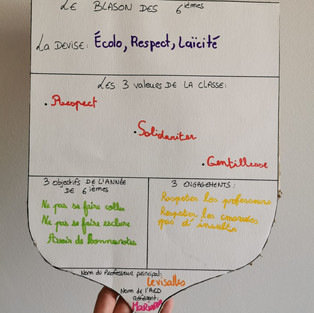 LE BLASON DES 6ièmes
LA DEVISE: Écolo, Respect, Laïcité
LES 3 VALEURS DE LA CLASSE:
. Respect
. Solidariter
. Gentillesse
3 objectifs DE L'ANNÉE DE 6ièmes
Ne pas se faire coller
Ne pas se faire exclure
Avoir de bonnes notes
3 ENGAGEMENTS:
Respeter les professeurs
Respeter les camarades
pas d'insultes
Nom du Professeur principal:
Levisalles
Nom de l'AED
référent: